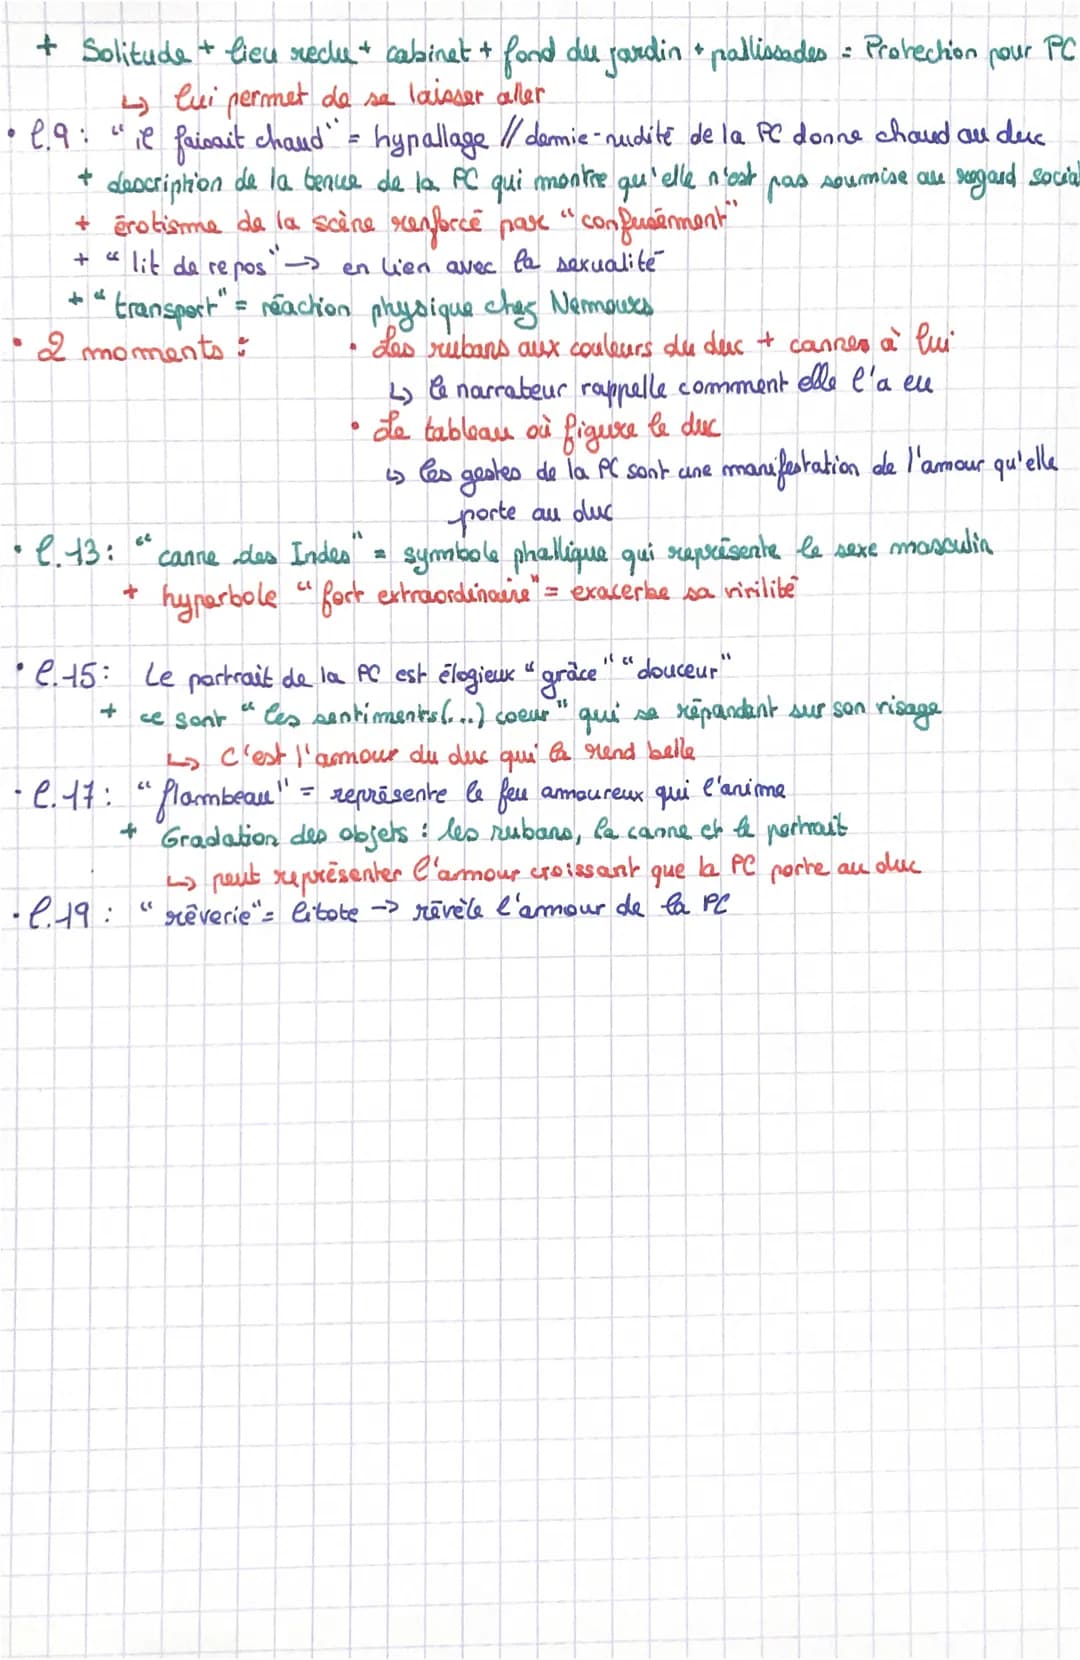 + Solitude + lieu reclu + cabinet + fond du jardin + pallissades = Protection pour PC
↳ lui permet de se laisser aller
• l.9 : "il faisait chaud" = hypallage // demie-nudité de la PC donne chaud au duc
+ description de la tenue de la PC qui montre qu'elle n'est pas soumise au regard social
+ érotisme de la scène renforcé par "confusément"
+ "lit de repos" → en lien avec la sexualité
+ "transport" = réaction physique chez Nemours
• 2 moments : • Les rubans aux couleurs du duc + cannes à lui
↳ le narrateur rappelle comment elle l'a eu
• Le tableau où figure le duc
↳ les gestes de la PC sont une manifestation de l'amour qu'elle
porte au duc
• l.13 : "canne des Indes" = symbole phallique qui représente le sexe masculin
+ hyperbole "fort extraordinaire" = exacerbe sa virilité
• l.15 : Le portrait de la PC est élogieux "grâce" "douceur"
+ ce sont "les sentiments (...) coeur" qui se répandent sur son visage
↳ C'est l'amour du duc qui la rend belle
• l.17 : "flambeau" = représente le feu amoureux qui l'anime
+ Gradation des objets : les rubans, la canne et le portrait
↳ peut représenter l'amour croissant que la PC porte au duc
• l.19 : "rêverie" = litote → révèle l'amour de la PC